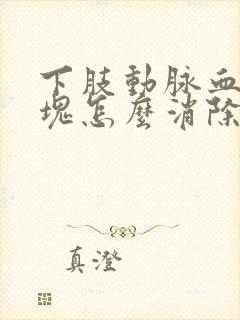 下肢動脉血
塊怎麼消除
真澄